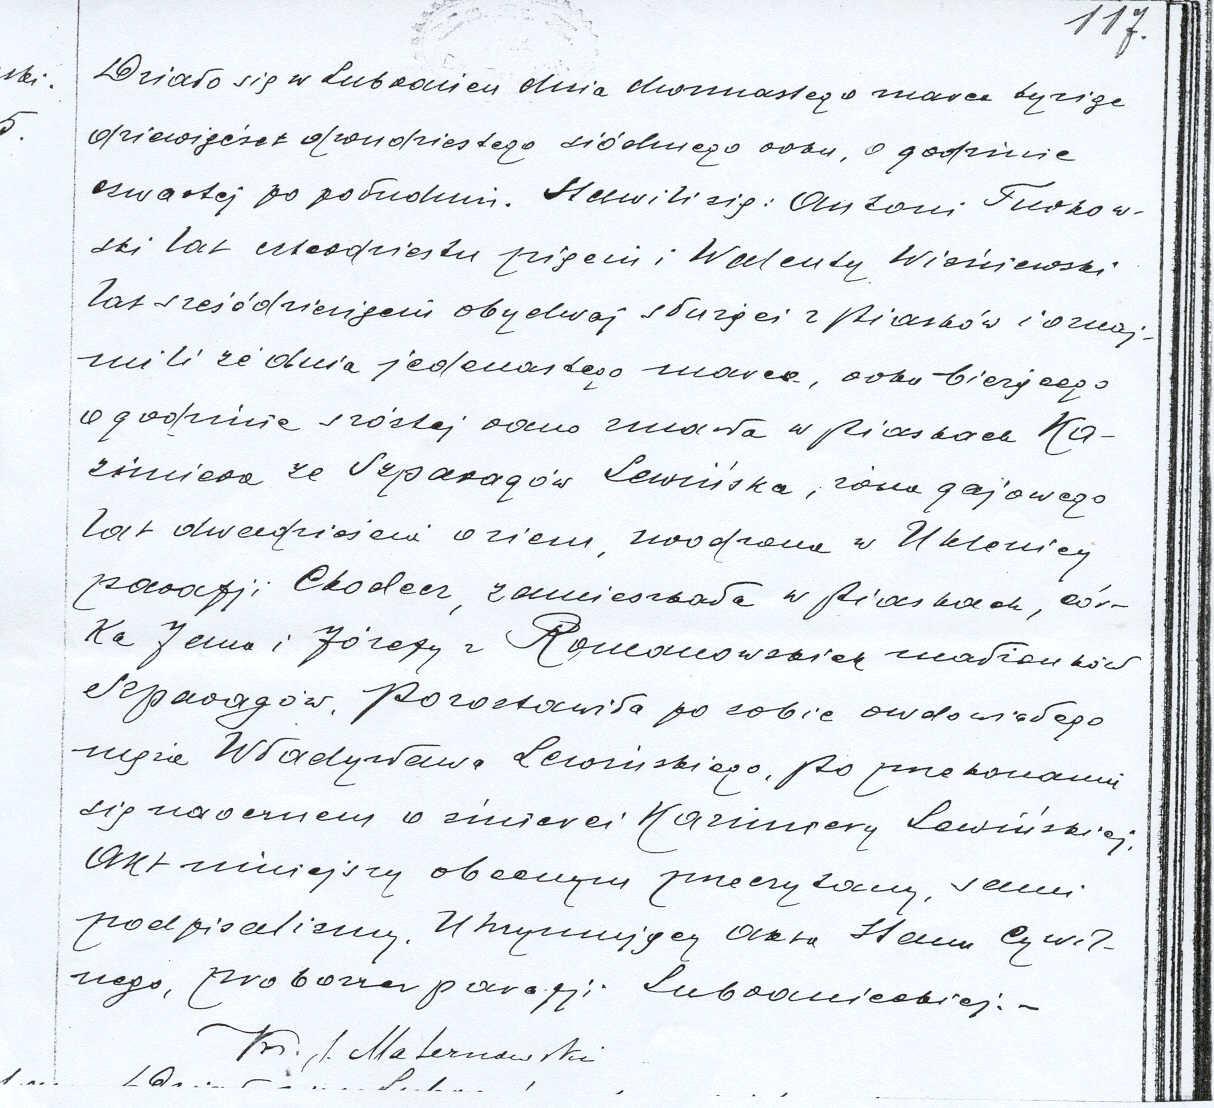 117.
ski.
5.
Działo się w Lubrańcu dnia dwunastego marca tysiąc
dziewięćset dwudziestego siódmego roku, o godzinie
czwartej po południu. Stawili się: Antoni Turkow-
ski lat czterdziestu pięciu i Walenty Wiśniewski
lat sześćdziesięciu obydwaj słurzący z Piasków i oznaj-
mili że dnia jedenastego marca, roku bierzącego
o godzinie szóstej rano zmarła w Piaskach Ka-
zimiera ze Szparagów Lewińska, żona gajowego
lat dwadzieścia osiem, urodzona w
parafji Chodecz, zamieszkała w Piaskach, cór-
ka Jana i Józefy z Romanowskich małżonków
Szparagów. Pozostawiła po sobie owdowiałego
męża Władysława Lewińskiego. Po przekonaniu
się naocznem o śmierci Kazimiery Lewińskiej.
Akt niniejszy obecnym przeczytany, sami
podpisaliśmy. Utrzymujący Akta Stanu Cywil-
nego, proboszcz parafji Lubranieckiej. -
Ks. J. Maternowski